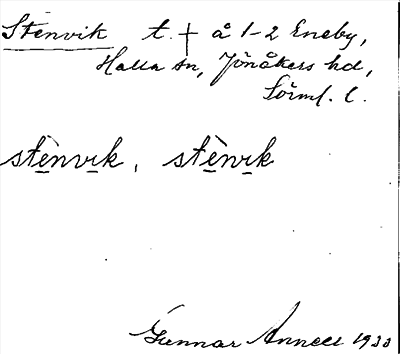 Stenvik t. † å 1-2 Eneby,
Halla sn, Jönåkers hd,
Sörml. l.
stènvik, stènvik
Gunnar Annell 1933